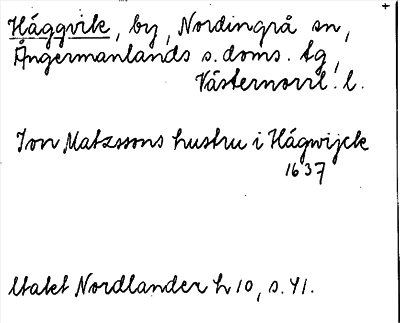 Häggvik, by, Nordingrå sn,
Ångermanlands s. doms. tg,
Västernorrl. l.
Jon Matzssons hustru i Hägwijck
1637
Utakt Nordlander h 10, s. 41.